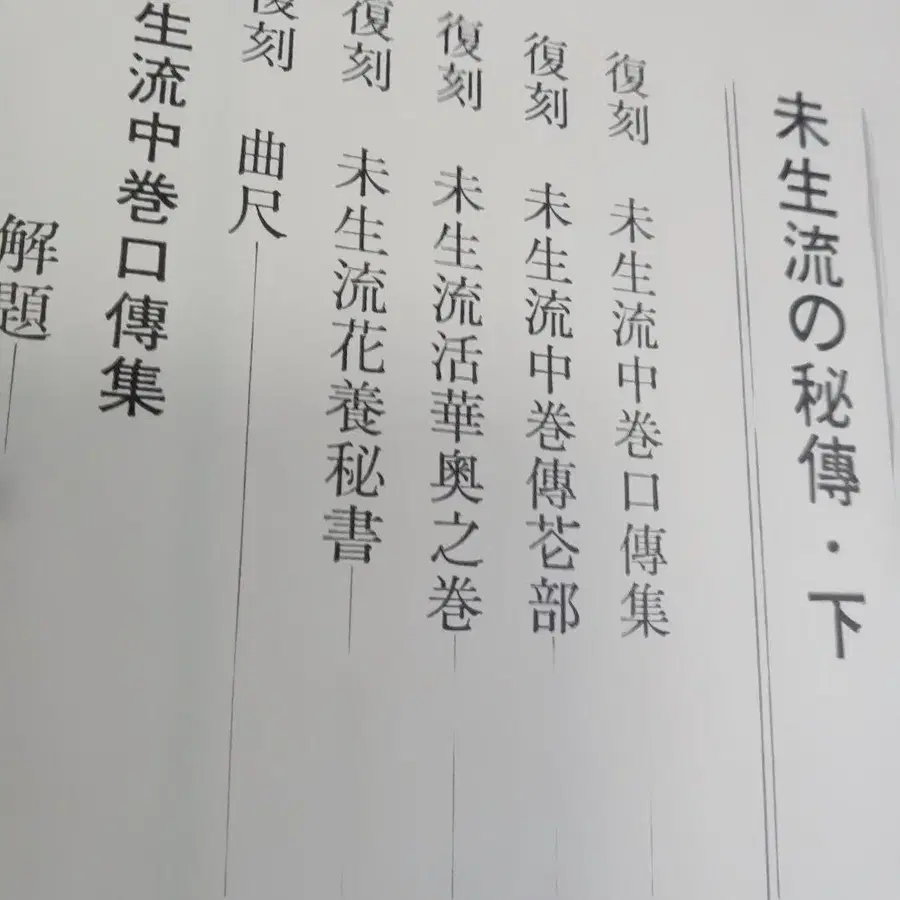 未生流の秘傳・下
復刻 未生流中巻口傳集
復刻 未生流中巻傳芲部
復刻 未生流活華奥之巻
復刻 未生流花養秘書
復刻 曲尺
生流中巻口傳集
解題